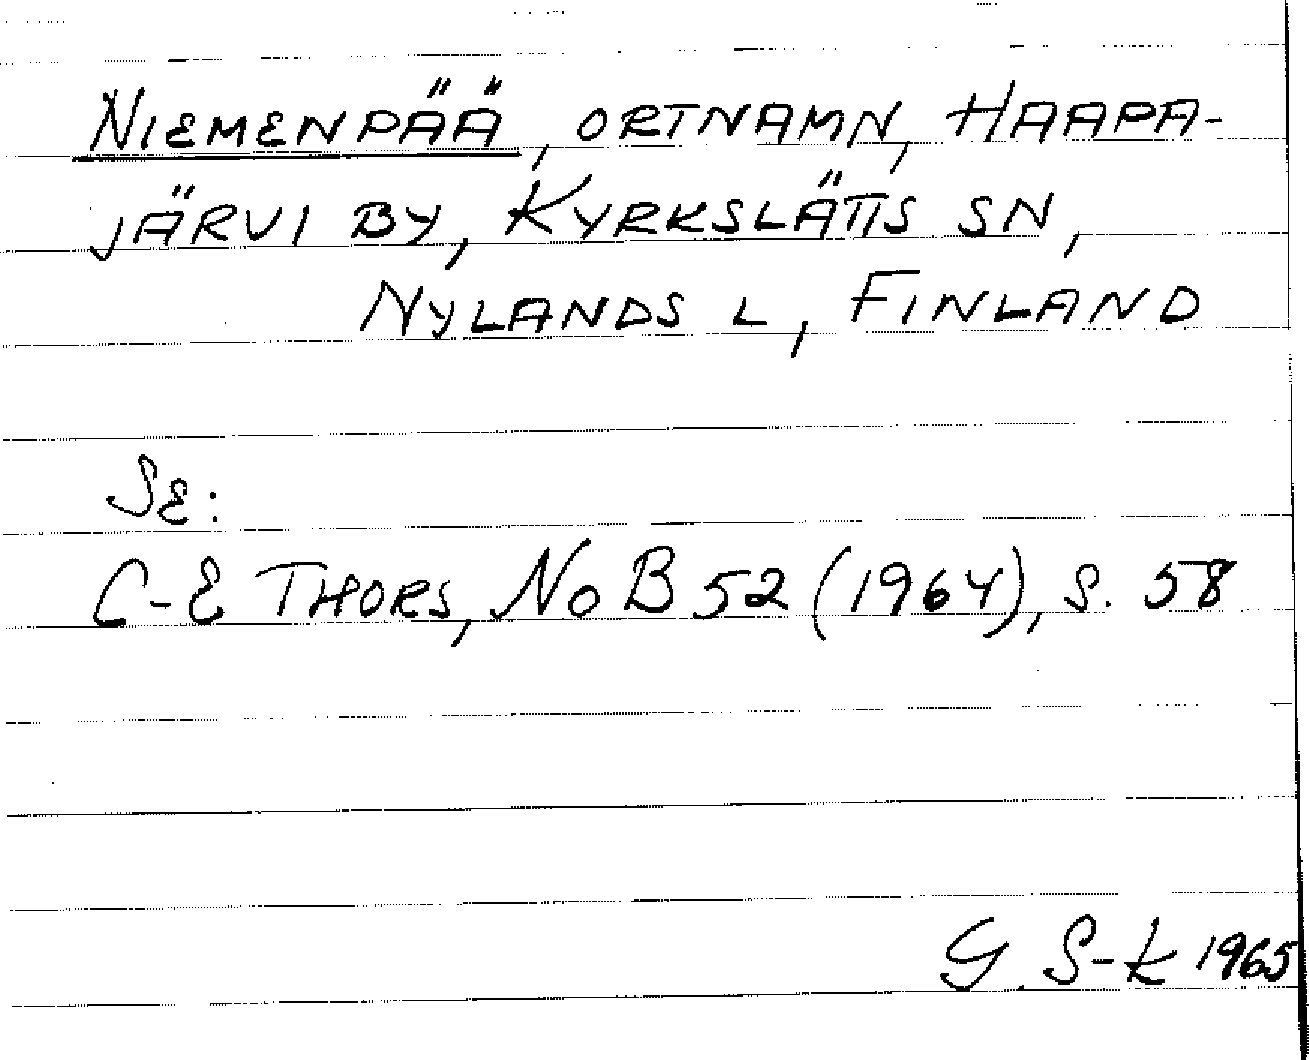 NIEMENPÄÄ, ORTNAMN, HAAPA-
JÄRVI BY, KYRKSLÄTTS SN,
NYLANDS L, FINLAND
SE:
C-E THORS, NoB 52 (1964), S. 58
G. S-K 1965